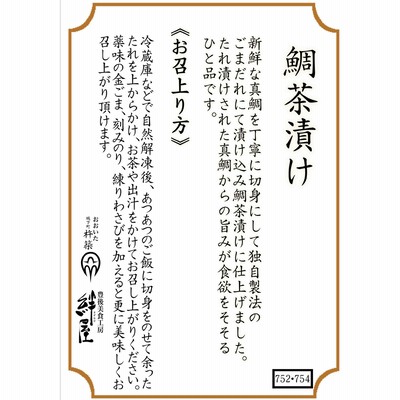 鯛茶漬け
新鮮な真鯛を丁寧に切身にして独自製法の
ごまだれにて漬け込み鯛茶漬けに仕上げました。
たれ漬けされた真鯛からの旨みが食欲をそそる
ひと品です。
《お召上り方》
冷蔵庫などで自然解凍後、あつあつのご飯に切身をのせて余った
たれを上からかけ、お茶や出汁をかけてお召し上がりください。
薬味の金ごま、刻みのり、練りわさびを加えると更に美味しくお
召し上がり頂けます。
おおいた
城下町
杵築
豊後美食工房
絆屋
752・754